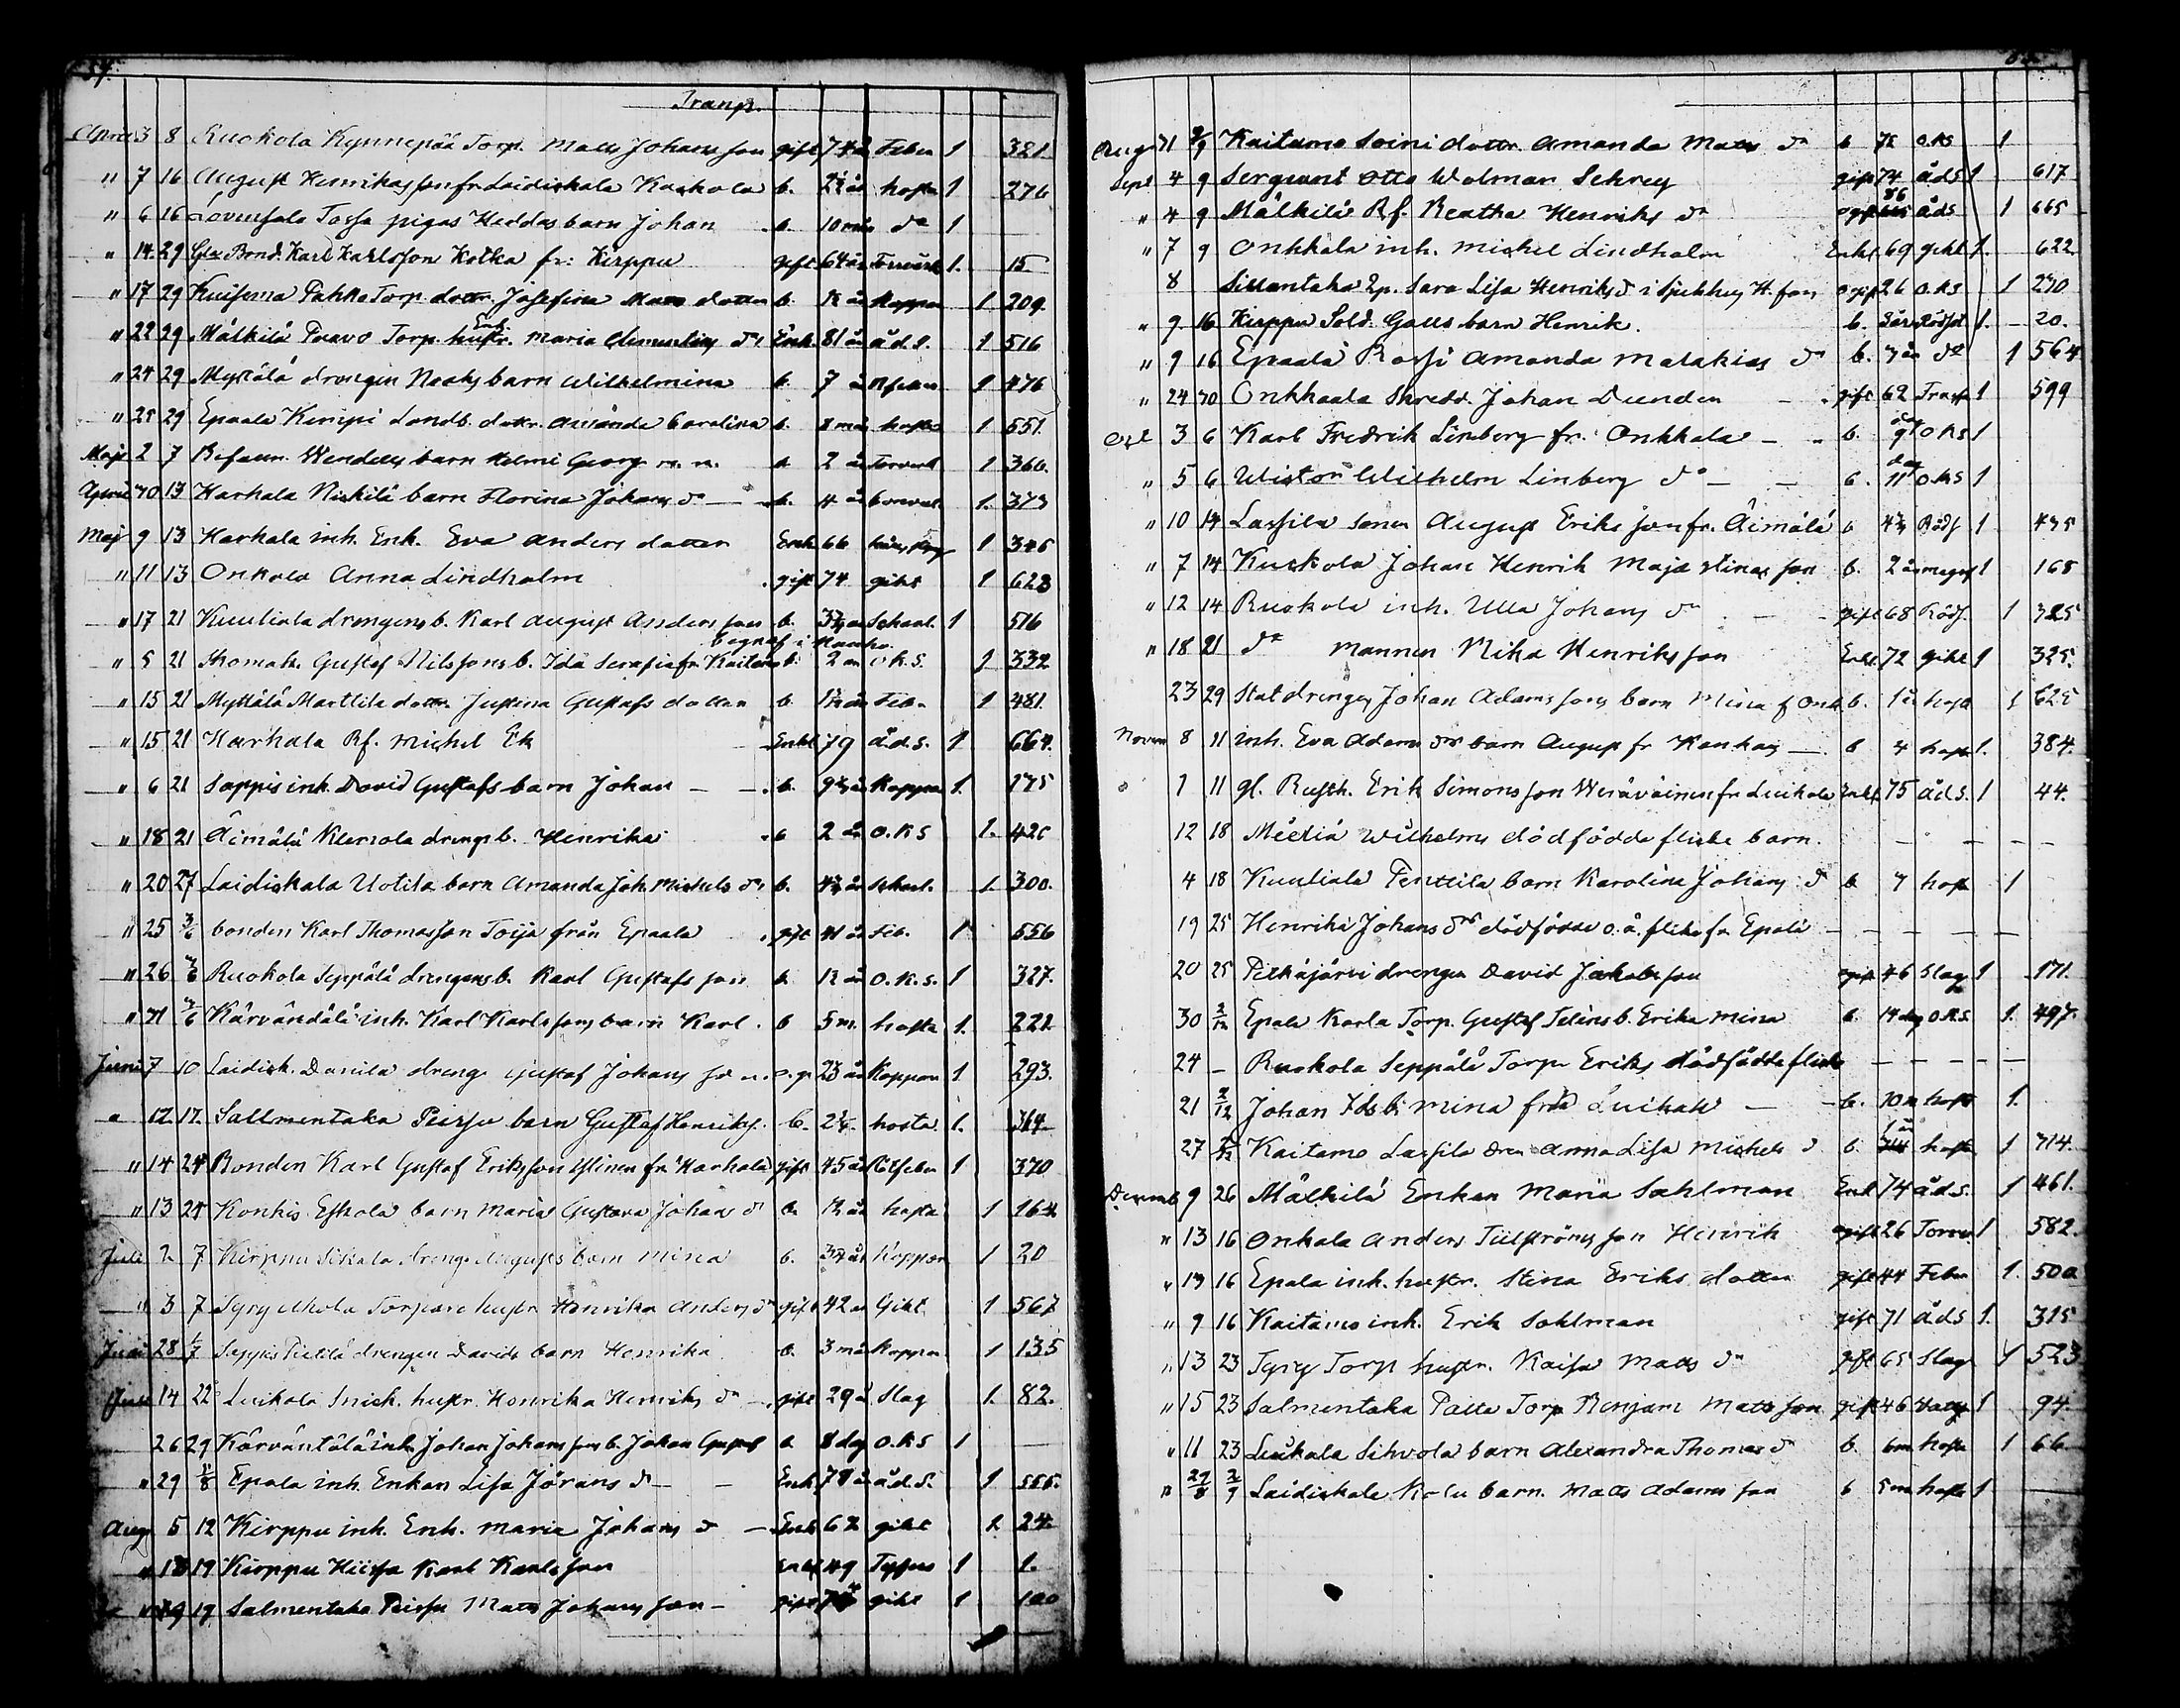 Transp.
April 3 8 Ruokola Kynnepää Torp. Matts Johansson gift 74 år Feber 1 321
" 7 16 August Henriksson fr Laidiskala Kaskola b. 2½ år hosta 1 276
" 6 16 Lovensala Tossa pigas Heddas barn Johan b. 10 mån do 1
" 14 29 Gl. Bond. Karl Karlsson Kotka fr: Kirppu gift 64 år 1. 15
" 17 29 Torp. dottr. Josefina Matts dotter b. 12 år Koppor 1 209.
" 22 29 Mälkilä Paavo Torp. Enk. Maria Clementis dr Enk. 81 år å.d.s. 1 516
" 24 29 Myttälä drengen barn Wilhelmina b. 7 å 1 476
" 25 29 Epaala Kimpi Landb. dottr. Amanda Carolina b. 8 mån hosta 1 551.
Maji 2 7 barn Helmi Georg m. n. b 2 år 1 360.
April 30 13 Harhala Niskilä barn Florina Johans dr b. 4 år 1. 373
Maj 9 13 Harhala inh. Enk. Eva Anders dotter Enk 66 1 345
" 11 13 Onkala Anna Lindholm gift 74 gikt 1 623
" 17 21 Kuuliala drengens b. Karl August Andersson b. 3½ år Scharl. 1 516
begraf i Hauho.
" 5 21 Gustaf Nilssons b. Ida Serafia fr. Kaitamo b. 2 år O.K.S. 1 332
" 15 21 Myttälä Marttila dottr. Justina Gustafs dotter b. 1½ år Feb. 1 481.
" 15 21 Harhala Rf. Michel Ek Enkl 79 å.d.s. 1 664.
" 6 21 Sappis inh. David Gustafs barn Johan b. 9½ år Koppor 1. 175
" 18 21 Äimälä Klemola drengs b. Henrika b 2 år O.K.S 1. 426
" 20 27 Laidiskala Uotila barn Amanda Joh. Michels dr b. 4½ år Scharl. 1. 300.
" 25 3/6 bonden Karl Thomasson Toija från Epaala gift 41 år Feb. 1 556
" 26 3/6 Ruokola Seppälä drengens b. Karl Gustafsson b. 12 år O.K.S. 1 327.
" 31 3/6 Kärväntälä inh. Karl Karlssons barn Karl b 5 m. hosta 1. 221.
Juni 7 10 Laidisk. Danila dreng Gustaf Johansson o.g. 23 år Koppor 1 293.
" 12 17. Sallmentaka Peissu barn Gustaf Henriks. b. 2½ hosta 1. 314
" 14 24 Bonden Karl Gustaf Eriksson Islinen fr. Harhala gift 45 år 1 370
" 13 24 Konkis Eskola barn Maria Gustava Johans dr b. 1½ år hosta 1 164
Juli 2 7 Kirppu Sikala drengs Augusts barn Mina b. 3½ år Koppor 1 20
" 3 7 Syry Torpare hustr. Henrika Anders dr gift 42 år Gikt 1 567
Juni 28 1/7 Sappis Pietilä drengen Davids barn Henrika b. 3 mån Koppor 1 135
Juli 14 22 Luikala Snick. hustr. Henrika Henriks dr gift 29 å Slag 1. 82.
26 29 Kärväntälä inh. Johan Johanssons b. Johan Gustaf b 8 dag O.K.S 1
" 29 5/8 Epala inh. Enkan Lisa Jörans dr Enk 78 å å.d.s. 1 555.
Aug 5 12 Kirppu inh. Enk. Maria Johans dr Enk 67 gikt 1 24.
" 13 19 Kirppu Hiissa Karl Karlsson Enkl 49 Tyfus 1 1.
" 19 19 Salmentaka Peissu Matts Johansson gift gikt 1 100
Aug 31 2/9 Kaitamo Soini dottr. Amanda Matts dr b O.K.S 1
Sept 4 9 Sergeant Otto Wolmar Schrey gift 74 å.d.s 1 617
" 4 9 Mälkilä Rf. Beatha Henriks dr ogift 86 å.d.s 1 665
" 7 9 Onkkala inh. Michel Lindholm Enkl. 69 gikt 1. 622
8 Sillantaka Lp. Sara Lisa Henriks d i ogift 26 O.K.S 1 270
" 9 16 Kirppu Sold. Galls barn Henrik. b. 3 år Rödsot 1. 20.
" 9 16 Epaala Rossi Amanda Malakias dr b. 7 år do 1 564
" 24 30 Onkkaala Skredd. Johan Dunder gift 62 1 599
Oct 3 6 Karl Fredrik Linberg fr. Onkkala b. 9 O.K.S 1
" 5 6 Wistor Wilhelm Linberg do b. 11 dag O.K.S 1
" 10 14 Lassila sonen August Eriksson fr. Äimälä b 4½ Röds 1 435
" 7 14 Kuckola Johan Henrik Maja Stinas son b. 2 år 1 168
" 12 14 Ruokola inh. Ulla Johans dr gift 68 Röds. 1 325
" 18 21 do mannen Mika Henriksson Enkl. 72 gikt 1 325.
23 29 Statdrengs Johan Adamssons barn Mina f Onk. b. 1 år hosta 1 625
Novem 8 11 inh. Eva Adams drs barn August fr Kankas b 4 hosta 1. 384.
1 11 gl. Rusth. Erik Simonsson Weräväinen fr Luikala Enkl 75 å.d.s. 1 44.
12 18 Wilhelms dödfödda flicke barn.
4 18 Kuuliala Penttila barn Karolina Johans d b 7 hosta 1
19 25 Henrika Johans drs dödfödda o.ä. flicka fr Epala
20 25 Pitkäjärvi drengen David Jakobsson ogift 46 Slag 1 171.
30 2/12 Epala Karla Torp. Gustaf Felins b. Erika Mina b. 14 dag O.K.S. 1. 497.
24 — Ruokola Seppälä Torp Eriks dödfödda flicka
21 2/12 Johan Ids b. Mina från Luikala b. 10 m hosta 1.
27 Kaitamo Lassila Anna Lisa Michels d b. hosta 1 314.
Decemb 9 26 Mälkilä Enkan Maria Sahlman Enk 74 å.d.s. 1 461.
" 13 16 Onkala Anders son Henrik ogift 26 1 582.
" 13 16 Epala inh. hustr. Stina Eriks dotter gift 44 Feber 1. 500
" 9 16 Kaitamo inh. Erik Sahlman gift 71 å.d.s 1. 315
" 13 23 Syry Torp hustr. Kaisa Matts dr gift 65 Slag 1 523
" 15 23 Salmentaka Palla Torp Benjam Mattsson gift 46 1 94.
" 11 23 Luikala Sihvola barn Alexandra Thomas dr b. 6 m hosta 1 66
" 29/8 2/9 Laidiskala barn. Matts Adamsson b 5 m hosta 1